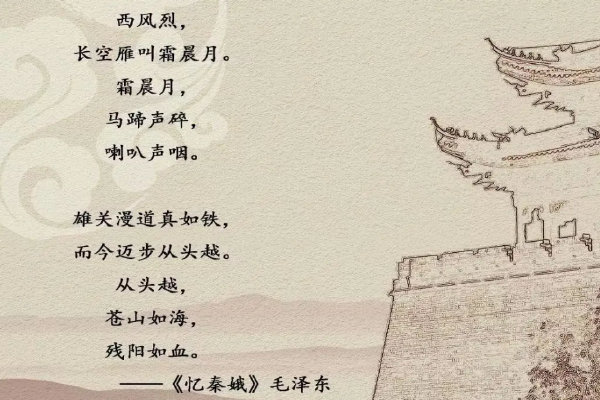 西风烈，
长空雁叫霜晨月。
霜晨月，
马蹄声碎，
喇叭声咽。
雄关漫道真如铁，
而今迈步从头越。
从头越，
苍山如海，
残阳如血。
——《忆秦娥》毛泽东